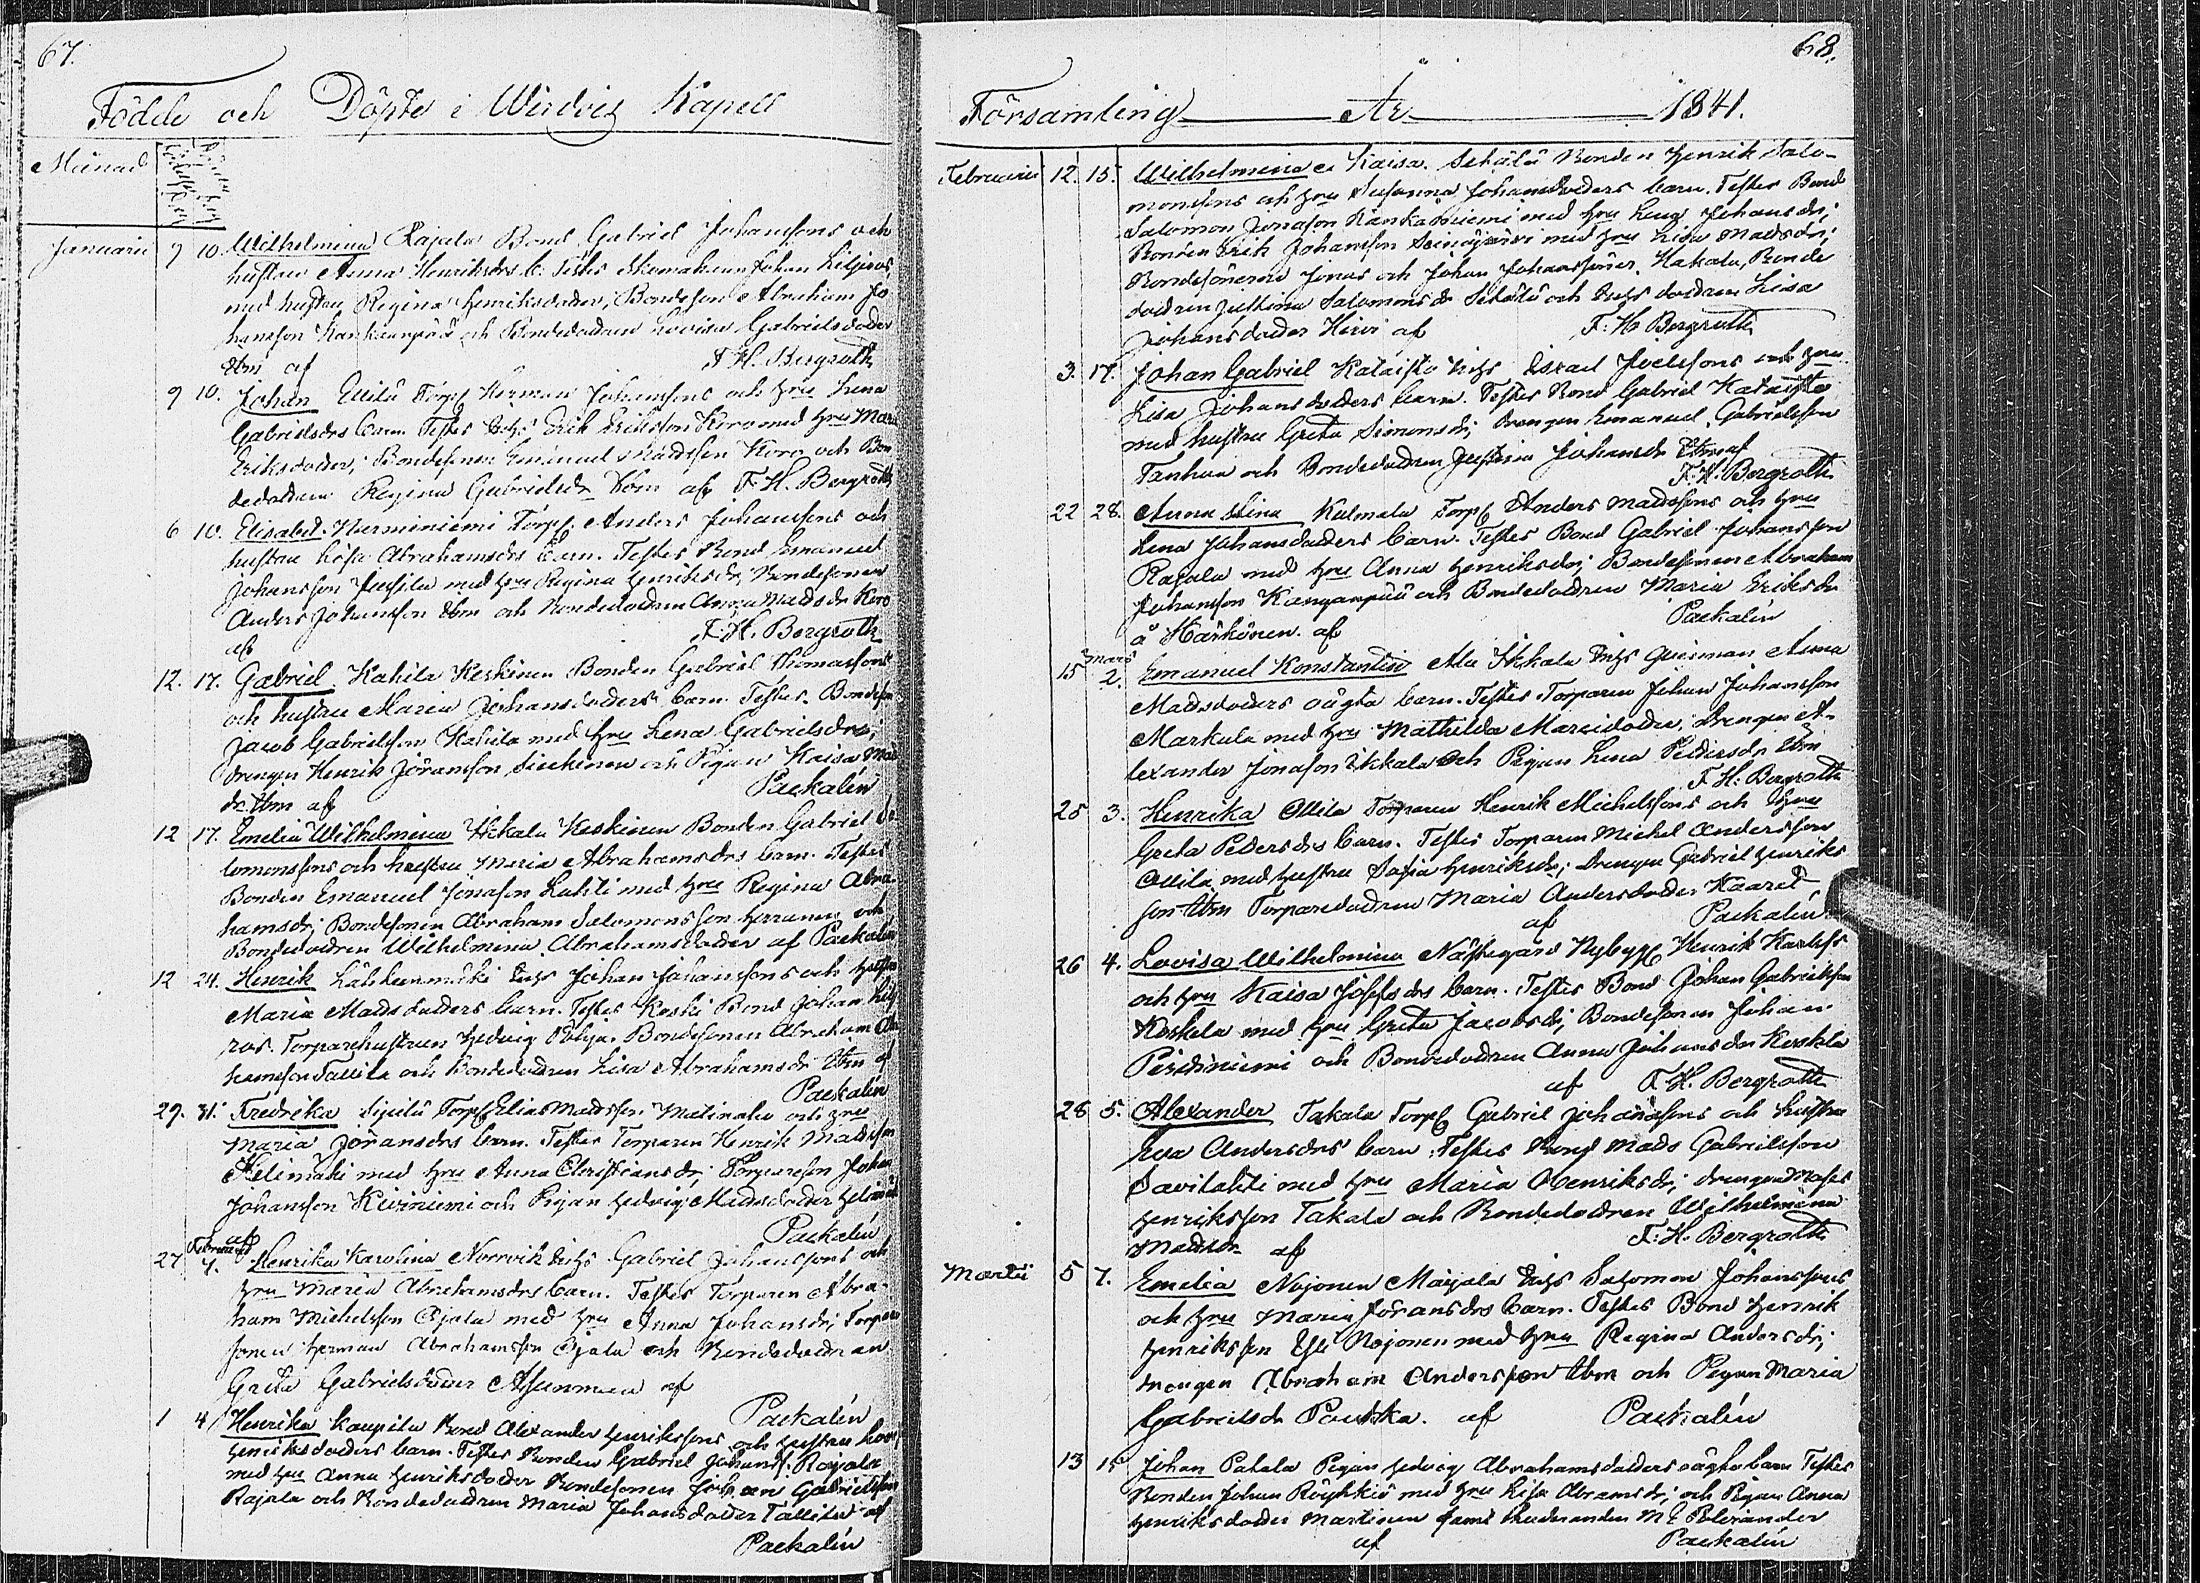 67.
Födde och Döpte i Wirdois Kapell
Månad
Januarii 9 10. Wilhelmina Rajala Bond Gabriel Johanssons och
hustru Anna Henriksdrs b. Testes Johan
med hustru Regina Henriksdoder, Bondeson Abraham Jo
hansson Kankaanpää och Bondedottren Lovisa Gabrielsdoder
Ibm af F. H. Bergroth
9 10. Johan Torp Herman Johanssons och hru Lena
Gabrielsdrs barn. Testes Inhs Erik Eriksson Koro med hru Maria
Eriksdoder; Bondesonen Emanuel Maddssen Koro och Bon
dedottren Regina Gabrielsdr Ibm af F. H. Bergroth
6 10. Elisabet Torp Anders Johanssons och
hustru Lisa Abrahamsdrs barn. Testes Bond Emanuel
Johansson med hru Regina Henriksdr; Bondesonen
Anders Johansson Ibm och Bondedottren Anna Maddsdr Koro
af F. H. Bergroth
12. 17. Gabriel Kahila Keskinen Bonden Gabriel Thomassons
och hustru Maria Johansdoders barn. Testes. Bondeson
Jacob Gabrielsson Kahila med hru Lena Gabrielsdr;
drengen Henrik Jöransson och Pigan Kaisa Mad
dr Ibm af Paekalén
12 17. Emelia Wilhelmina Ikkala Keskinen Bonden Gabriel Sa
lomonssons och hustru Maria Abrahamsdrs barn. Testes
Bonden Emanuel Jonasson Lahti med hru Regina Abra
hamsdr; Bondesonen Abraham Salomonsson Herranen och
Bondedottren Wilhelmina Abrahamsdoder af Paekalén
12 24. Henrik Inhs Johan Johanssons och hustru
Maria Madsdoders barn. Testes Koski Bond Johan
Torparehustrun Hedvig Pohja. Bondesonen Abraham Abra
hamsson Tallila och Bondedottren Lisa Abrahamsdr Ibm af
Paekalén
29. 31. Fredrika Sipilä Torp Elias Maddsson och hru
Maria Jöransdrs barn. Testes Torparen Henrik Maddsson
med hru Anna Christiansdr; Torpareson Johan
Johansson Kiviniemi och Pigan Hedvig Maddsdoder
af Paekalén
27 Februarii 7. Henrika Karolina Norrvik Inhs Gabriel Johanssons och
hru Maria Abrahamsdrs barn. Testes Torparen Abra-
ham Michelsson Ojala med hru Anna Johansdr; Torpare
sonen Herman Abrahamsson Ojala och Bondedottren
Greta Gabrielsdoder af
Paekalén
1 4 Henrika Kaupila Bond Alexander Henrikssons och hustru
Henriksdoders barn. Testes Bonden Gabriel Johanss. Rajala
med hru Anna Henriksdoder Bondesonen Johan Gabrielsson
Rajala och Bondedottren Maria Johansdoder Tallila af
Paekalén
68.
Församling År 1841.
Februarii 12. 15. Wilhelmina Kaisa Setälä Bonden Henrik Salo-
monssons och hru Susanna Johansdoders barn. Testes Bond
Salomon Jonasson med hru Lena Johansdr;
Bonden Erik Johansson Seinäjärvi med hru Lisa Madsdr;
Bondesönerne Jonas och Johan Johanssöner Hakala, Bonde
dottren Salomonsdr Setälä och Inhs dottren Lisa
Johansdoder Hirvi af F. H. Bergroth
3. 17. Johan Gabriel Kataisto Inhs Israel Joelssons och hru
Lisa Johansdoders barn. Testes Bond Gabriel Kataisto
med hustru Greta Simonsdr; drengen Emanuel Gabrielsson
Tanhua och Bondedottren Justina Johansdr Ibm af
F. H. Bergroth
22 28. Anna Stina Kulmala Torp Anders Maddssons och hru
Lena Johansdoders barn. Testes Bond Gabriel Johansson
Rajala med hru Anna Henriksdr; Bondesonen Abraham
Johansson Kangaanpää och Bondedottren Maria Eriksdr
å Härkönen. af Paekalén
15 Mars 2. Emanuel Konstantin Ala Ikkala Inhs qvinnan Anna
Maddsdoders oägta barn. Testes Torparen Johan Johansson
Markula med hru Mathilda Mariadoder; Drengen A-
lexander Jonasson Ikkala och Pigan Lena Pettersdr Ibm
F. H. Bergroth
25 3. Henrika Ollila Torparen Henrik Michelssons och hru
Greta Petersdrs barn. Testes Torparen Michel Andersson
Ollila med hustru Sofia Henriksdr; Drengen Gabriel Henriks
son Ibm Torparedottren Maria Andersdoder
af Paekalén
26 4. Lovisa Wilhelmina Nybygg Henrik
och hru Kaisa Josefsdrs barn. Testes Bond Johan Gabrielsson
Koskela med hru Greta Jacobsdr; Bondesonen Johan
och Bondedottren Anna Johansdr Koskela
af F. H. Bergroth
28 5. Alexander Takala Torp Gabriel Johanssons och hustru
Eva Andersdrs barn. Testes Bond Mads Gabrielsson
Savilahti med hru Maria Henriksdr; drengen Moses
Henriksson Takala och Bondedottren Wilhelmina
Maddsdr af F. H. Bergroth
Martii 5 7. Emelia Nojonen Inhs Salomon Johanssons
och hru Maria Jöransdrs barn. Testes Bond Henrik
Henriksson Yli Nojonen med hru Regina Andersdr;
drengen Abraham Andersson Ibm och Pigan Maria
Gabrielsdr Poukka. af Paekalén
13 15 Johan Patala Pigan Hedvig Abrahamsdoders oägta barn Testes
Bonden Johan med hru Lisa Abramsdr; och Pigan Anna
Henriksdoder Martinen samt Studeranden M E Polviander
af Paekalén